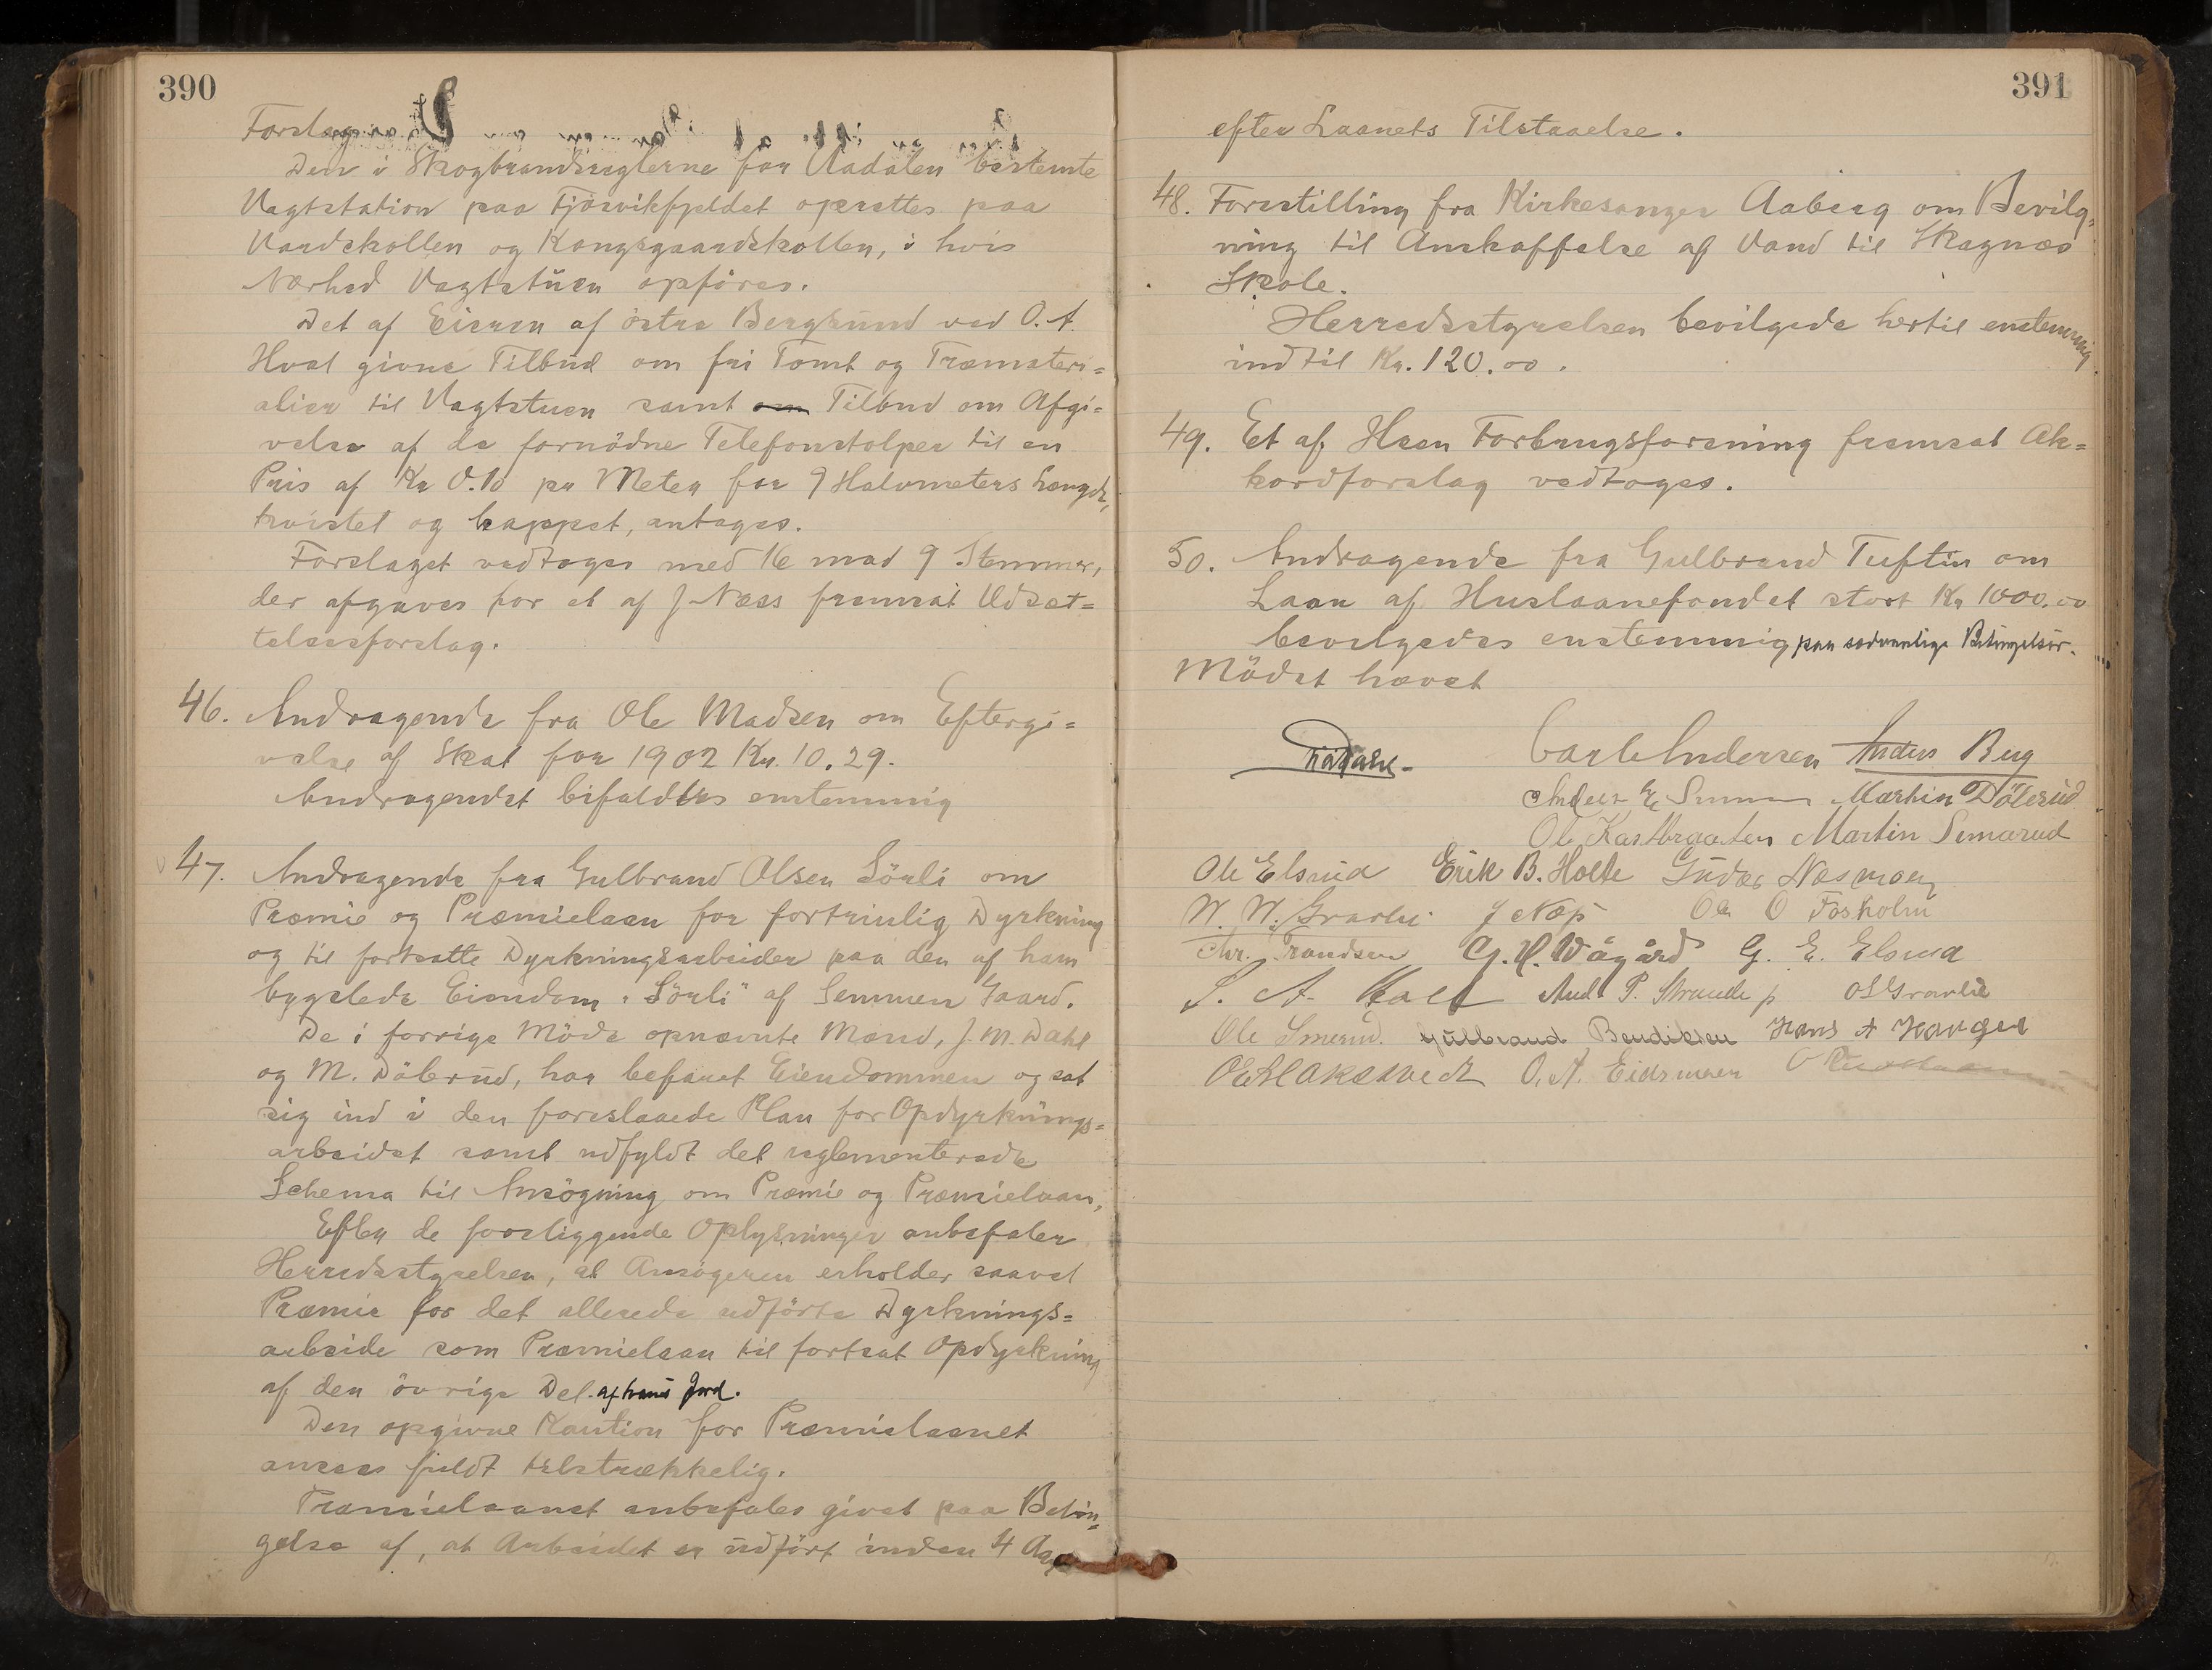 390
Forslag
Den i Skogbrandsreglerne for Aadalen bestemte
Vagtstation paa Fjösvikfjeldet oprettes paa
Vardekollen og Kongsgaardskollen, i hvis
Nærhed Vagtstuen opföres.
Det af Eieren af östre Bergsund ved O. A.
Hval givne Tilbud om fri Tomt og Træmateri=
alier til Vagtstuen samt om Tilbud om Afgi=
velse af de fornödne Telefonstolper til en
Pris af Kr 0.10 pr Meter for 9 Halvmeters Længde,
kvistet og kappet, antages.
Forslaget vedtoges med 16 mod 9 Stemmer,
der afgaves for et af J Næss fremsat Udsæt=
telsesforslag.
46. Andragende fra Ole Madsen om Eftergi=
velse af Skat for 1902 Kr. 10.29.
Andragendet bifaldtes enstemmig
47. Andragende fra Gulbrand Olsen Sörli om
Præmie og Præmielaan for fortrinlig Dyrkning
og til fortsatte Dyrkningsarbeider paa den af ham
bygslede Eiendom "Sörli" af Semmen Gaard.
De i forrige Möde opnævnte Mænd, J. M. Dahl
og M. Dölerud, har befaret Eiendommen og sat
sig ind i den foreslaaede Plan for Opdyrknings=
arbeidet samt udfyldt det reglementerede
Schema til Ansögning om Præmie og Præmielaan,
Efter de foreliggende Oplysninger anbefaler
Herredsstyrelsen, at Ansögeren erholder saavel
Præmie for det allerede udförte Dyrknings=
arbeide som Præmielaan til fortsat Opdyrkning
af den övrige Del. af hans Jord.
Den opgivne Kaution for Præmielaanet
ansees fuldt tilstrækkelig.
Præmielaanet anbefales givet paa Betin=
gelse af, at Arbeidet er udfört inden 4 Aar
391
efter Laanets Tilstaaelse.
48. Forestilling fra Kirkesanger Aaberg om Bevilg=
ning til Anskaffelse af Vand til Skagnæs
Skole.
Herredsstyrelsen bevilgede hertil enstemmig
indtil Kr. 120.00.
49. Et af Hsen Forbrugsforening fremsat Ak=
kordforslag vedtoges.
50. Andragende fra Gulbrand Tuftin om
Laan af Huslaanefondet stort Kr 1000.00
bevilgedes enstemmig paa sedvanlige Betingelser.
Mödet hævet
Carl Andersen Anders Berg
Anders E Martin Dölerud
Ole Kastbraaten Martin Semerud
Ole Elsrud Erik B. Holte Gudbr Næsmoen
N. N. Gravlie J Næs Ole O Fosholm
Chr. Trondsen G. H. Vågård G. E. Elsrud
S. A. And. P. Strande O S Gravlie
Ole Smerud. Gulbrand Bendiksen Hans A Haugen
O. A. Eidsmoen